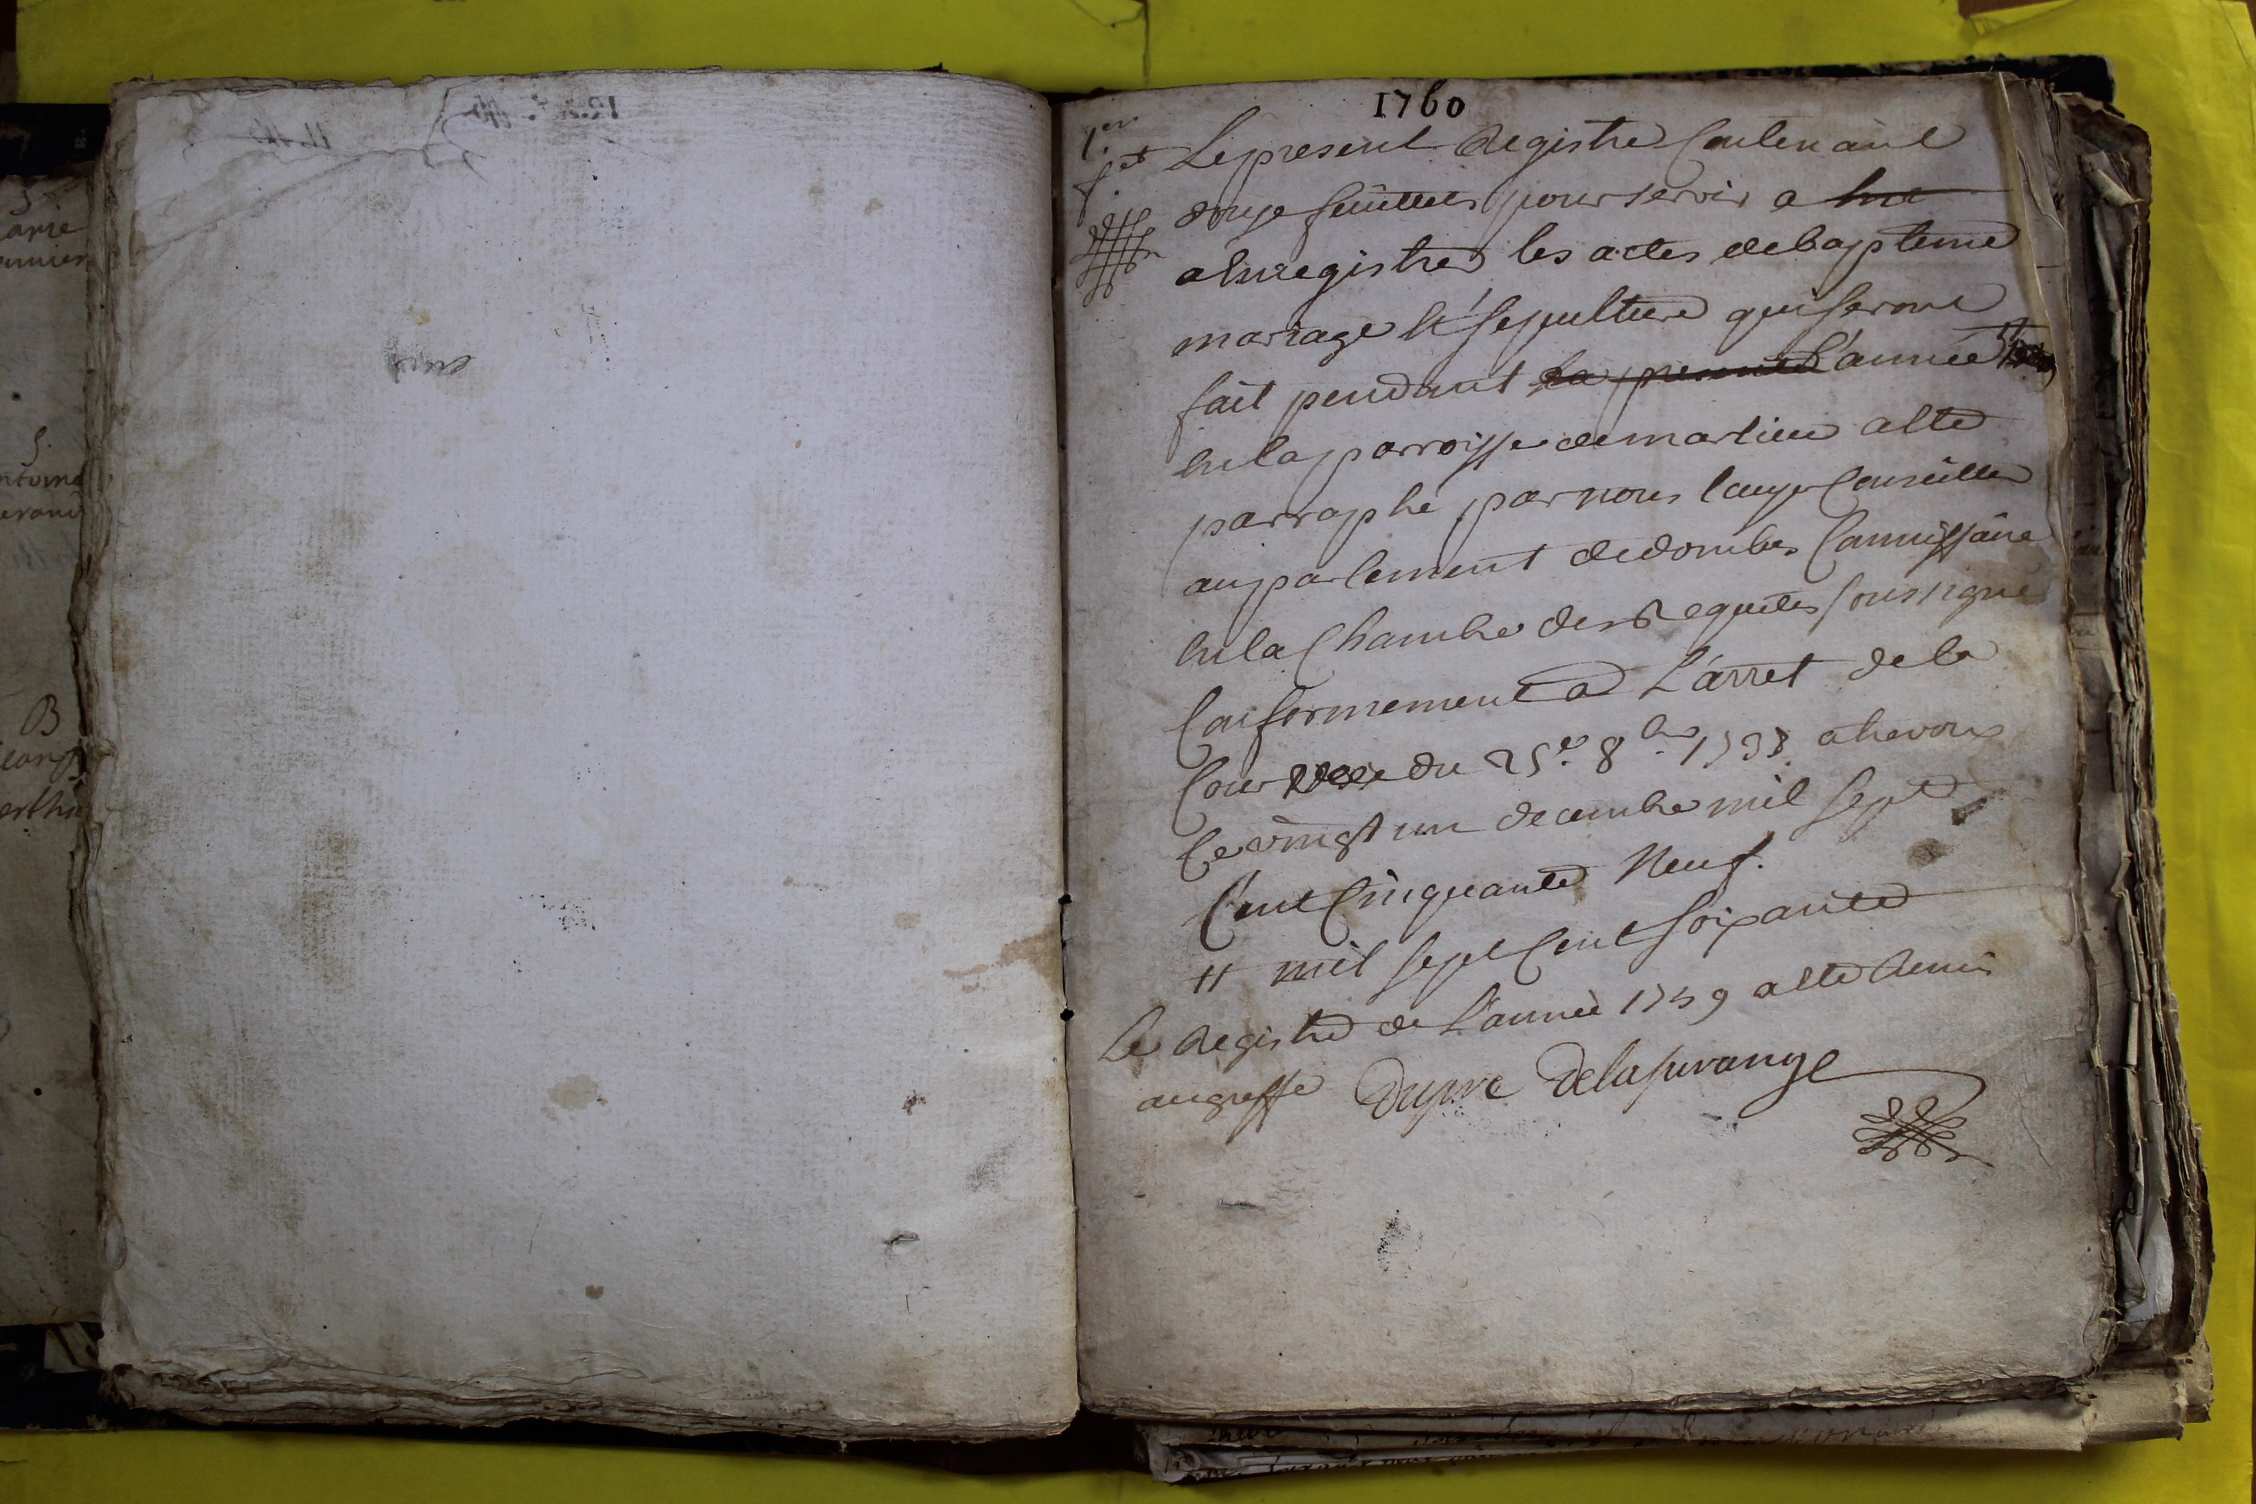 arie
S.
ntoine
B
1760
1.er
f.et Le present Registre Contenant
douze feuillets pour servir a
a Enregistrer les actes de bapteme
mariage Et sepulture qui seront
fait pendant la presente l'année #
En la parroisse de a Eté
parraphé par nous Conseiller
au parlement de dombes Commissaire
En la Chambre des Requetes soussigné
Conformement a L'arret de la
Cour du 25.e 8.bre a trevoux
Ce vingt un decembre mil sept
Cent Cinquante Neuf.
# mil sept Cent soixante
Le Registre de L'année 1759 a Eté Remis
au greffe Dupré Delasurange